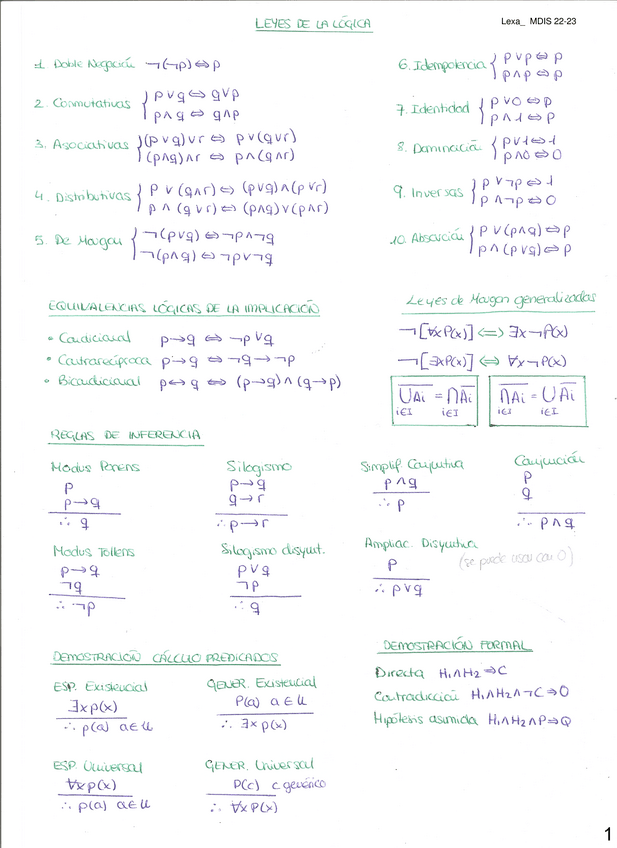 LEYES DE LA LÓGICA
Lexa_ MDIS 22-23
1. Doble Negación ¬(¬p) ⇔ p
2. Conmutativas { p ∨ q ⇔ q ∨ p
p ∧ q ⇔ q ∧ p
3. Asociativas { (p ∨ q) ∨ r ⇔ p ∨ (q ∨ r)
(p ∧ q) ∧ r ⇔ p ∧ (q ∧ r)
4. Distributivas { p ∨ (q ∧ r) ⇔ (p ∨ q) ∧ (p ∨ r)
p ∧ (q ∨ r) ⇔ (p ∧ q) ∨ (p ∧ r)
5. De Morgan { ¬(p ∨ q) ⇔ ¬p ∧ ¬q
¬(p ∧ q) ⇔ ¬p ∨ ¬q
6. Idempotencia { p ∨ p ⇔ p
p ∧ p ⇔ p
7. Identidad { p ∨ 0 ⇔ p
p ∧ 1 ⇔ p
8. Dominación { p ∨ 1 ⇔ 1
p ∧ 0 ⇔ 0
9. Inversas { p ∨ ¬p ⇔ 1
p ∧ ¬p ⇔ 0
10. Absorción { p ∨ (p ∧ q) ⇔ p
p ∧ (p ∨ q) ⇔ p
EQUIVALENCIAS LÓGICAS DE LA IMPLICACIÓN
• Condicional p → q ⇔ ¬p ∨ q
• Contrarecíproca p → q ⇔ ¬q → ¬p
• Bicondicional p ↔ q ⇔ (p → q) ∧ (q → p)
Leyes de Morgan generalizadas
¬[∀x P(x)] ⇔ ∃x ¬P(x)
¬[∃x P(x)] ⇔ ∀x ¬P(x)
$\overline{\bigcup_{i∈I} A_i} = \bigcap_{i∈I} \overline{A_i}$
$\overline{\bigcap_{i∈I} A_i} = \bigcup_{i∈I} \overline{A_i}$
REGLAS DE INFERENCIA
Modus Ponens
p
p → q
∴ q
Silogismo
p → q
q → r
∴ p → r
Simplif. Conjuntiva
p ∧ q
∴ p
Conjunción
p
q
∴ p ∧ q
Modus Tollens
p → q
¬q
∴ ¬p
Silogismo disyunt.
p ∨ q
¬p
∴ q
Ampliac. Disyuntiva
(se puede usar con 0)
p
∴ p ∨ q
DEMOSTRACIÓN CÁLCULO PREDICADOS
ESP. Existencial
∃x p(x)
∴ p(a) a ∈ U
GENER. Existencial
P(a) a ∈ U
∴ ∃x p(x)
ESP. Universal
∀x p(x)
∴ p(a) a ∈ U
GENER. Universal
P(c) c genérico
∴ ∀x P(x)
DEMOSTRACIÓN FORMAL
Directa H₁ ∧ H₂ ⇒ C
Contradicción H₁ ∧ H₂ ∧ ¬C ⇒ 0
Hipótesis asumida H₁ ∧ H₂ ∧ P ⇒ Q
1